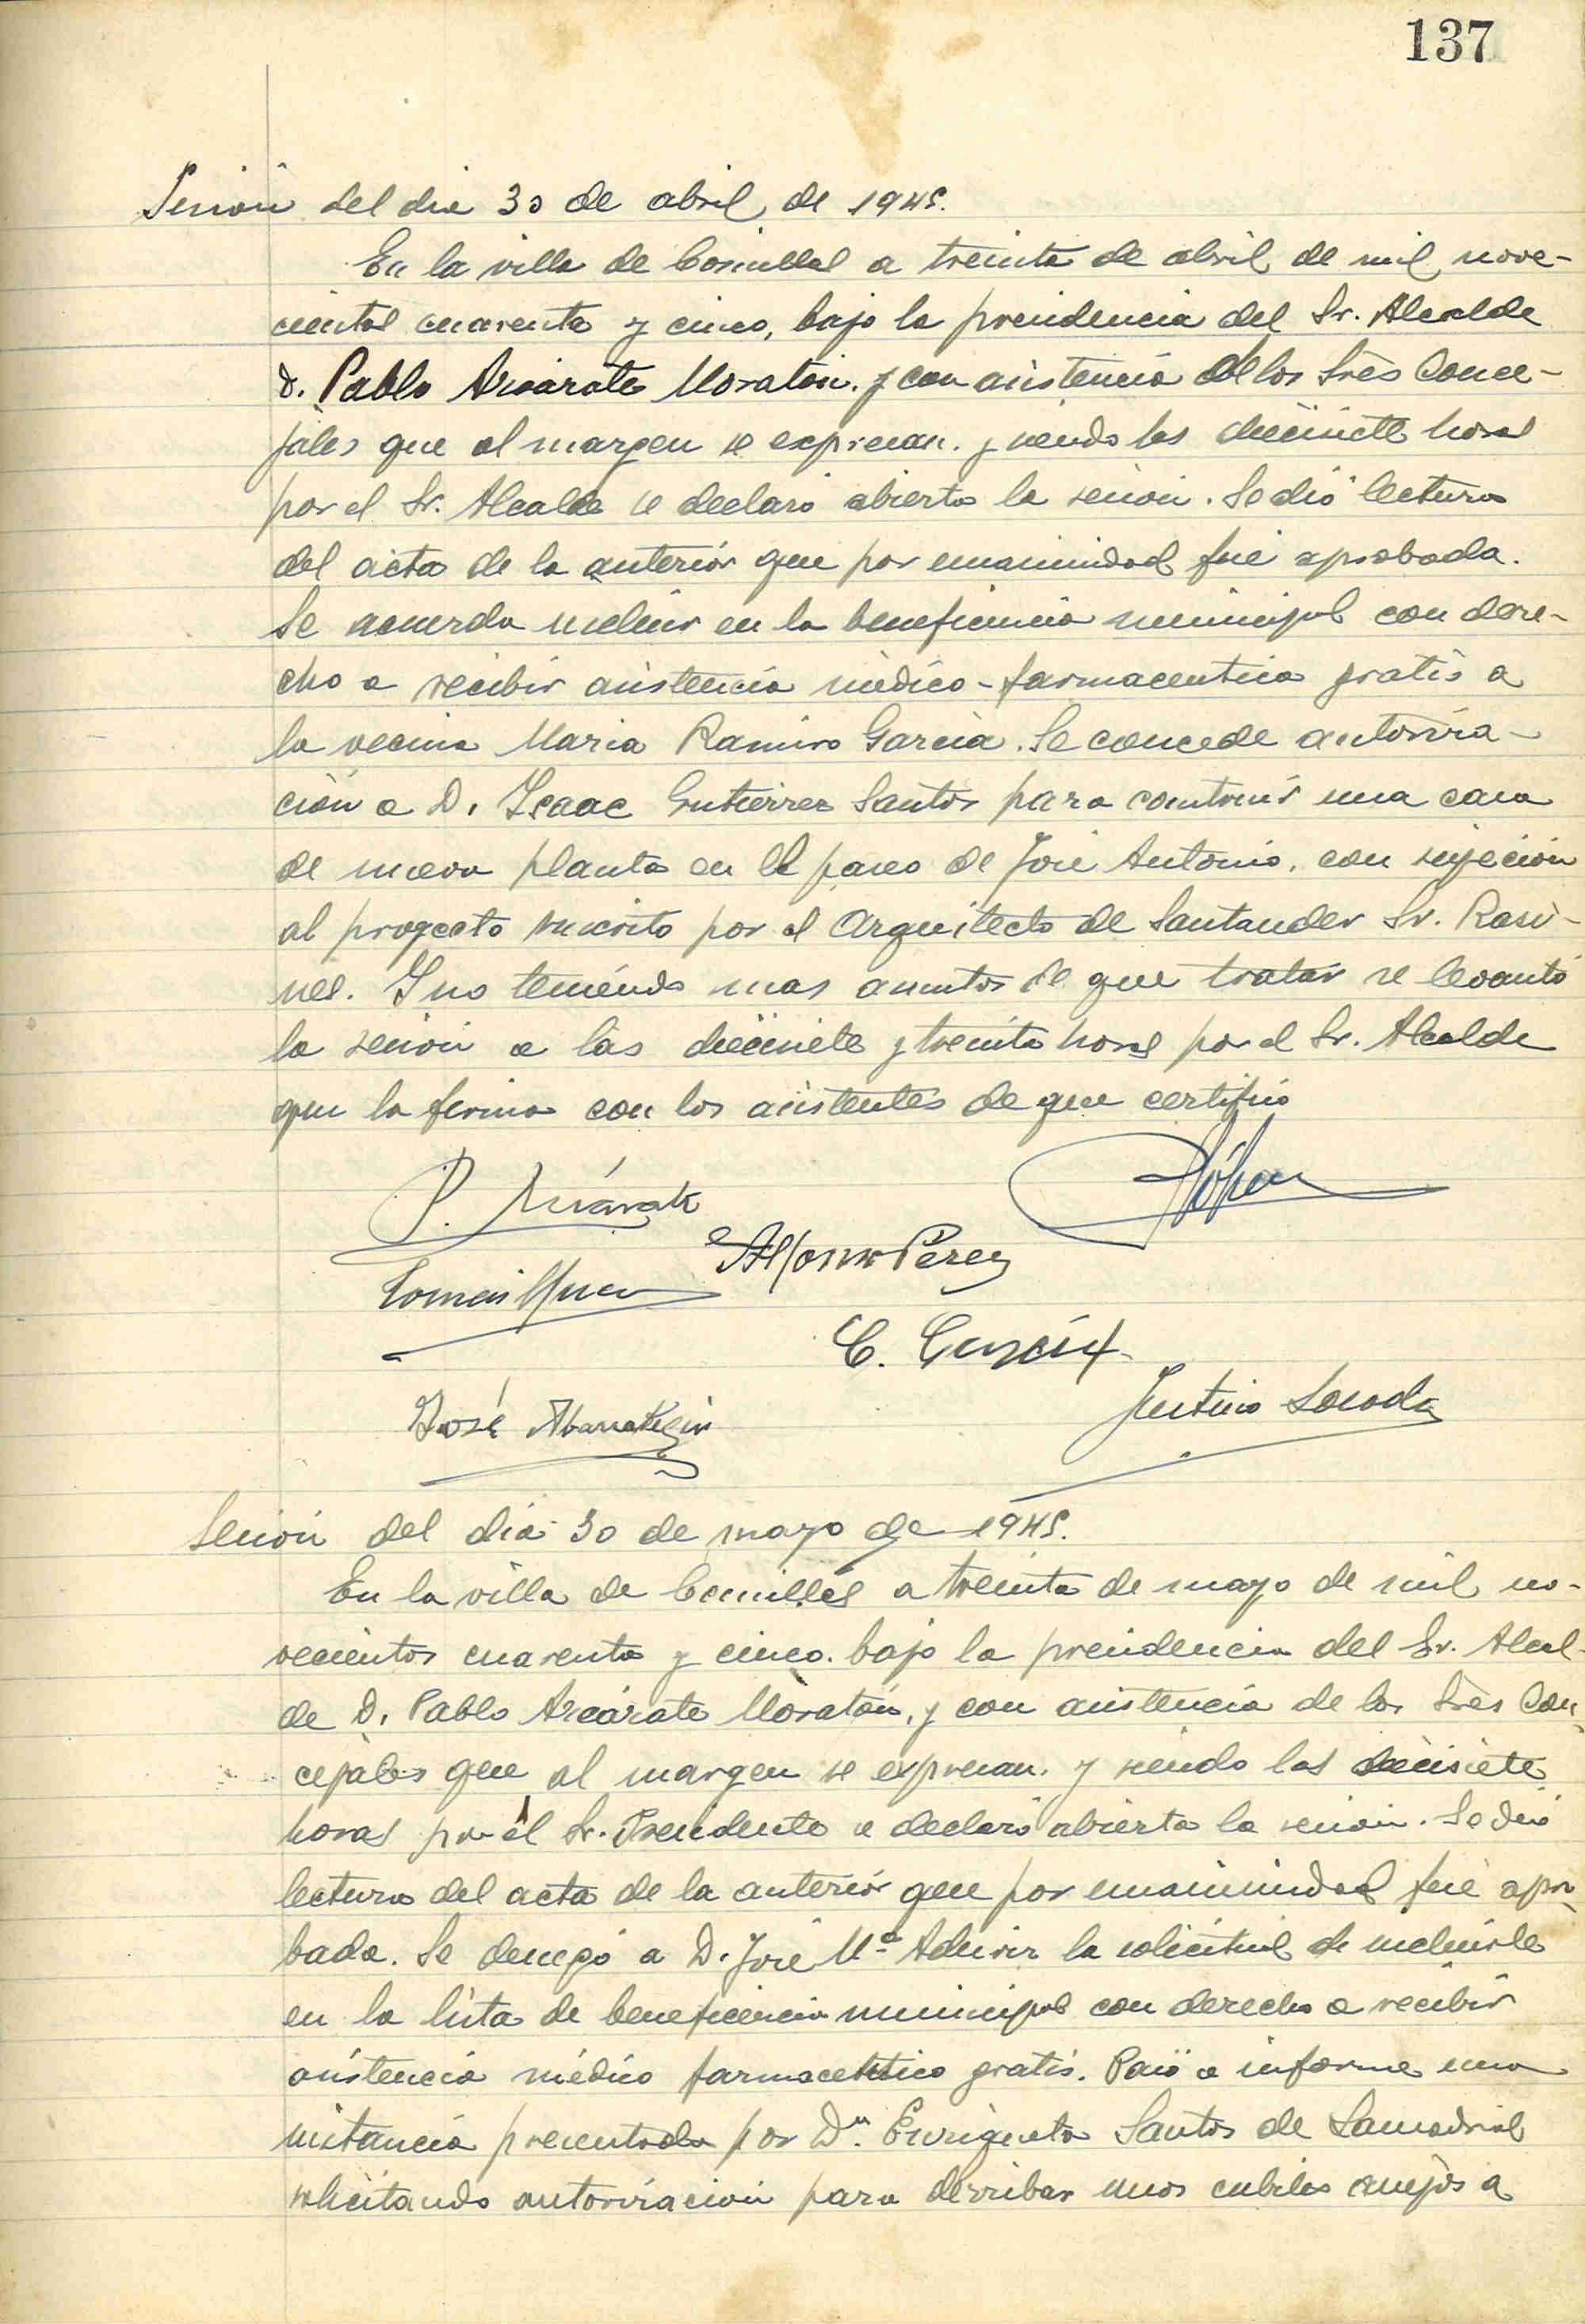 137
Sesion del dia 30 de abril de 1945.
En la villa de Comillas a treinta de abril de mil nove-
cientos cuarenta y cinco, bajo la presidencia del Sr. Alcalde
D. Pablo Azcárate Moratón. y con asistencia de los Sres Conce-
jales que al margen se expresan. y siendo las diecisiete horas
por el Sr. Alcalde se declaró abierta la sesion. Se dió lectura
del acta de la anterior que por unanimidad fué aprobada.
Se acuerda incluir en la beneficencia municipal con dere-
cho a recibir asistencia médico-farmaceutica gratis a
la vecina Maria Ramiro Garcia. Se concede autoriza-
ción a D. Isaac Gutierrez Santos para construir una casa
de nueva planta en el paseo de José Antonio, con sujeción
al proyecto suscrito por el Arquitecto de Santander Sr. Rasi-
nes. Y no teniendo mas asuntos de que tratar se levantó
la sesion a las diecisiete y treinta horas por el Sr. Alcalde
que la firma con los asistentes de que certifico
P. Azcárate
Alfonso Perez
C. García
José Abarrategui
Justino Losada
Sesion del dia 30 de mayo de 1945.
En la villa de Comillas a treinta de mayo de mil no-
vecientos cuarenta y cinco. bajo la presidencia del Sr. Alcal-
de D. Pablo Azcárate Moratón, y con asistencia de los Sres Con-
cejales que al margen se expresan. y siendo las diecisiete
horas por el Sr. Presidente se declaró abierta la sesion. Se dió
lectura del acta de la anterior que por unanimidad fué apro-
bada. Se denegó a D. José Mª la solicitud de incluirle
en la lista de beneficencia municipal con derecho a recibir
asistencia médico farmaceutico gratis. Pasó a informe una
instancia presentada por Dª. Enriqueta Santos de Lamadrid
solicitando autorizacion para derribar unos cubiles anejos a